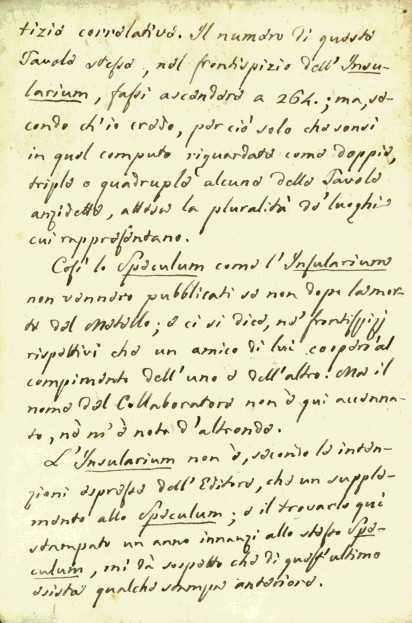 tizie correlative. Il numero di queste
Tavole stesse, nel frontispizio dell'Insu-
larium, fassi ascendere a 264.; ma, se-
condo ch'io credo, per ciò solo che sonsi
in quel computo riguardate come doppie,
triple o quadruple alcune delle Tavole
anzidette, attesa la pluralità de' luoghi
cui rappresentano.
Così lo Speculum come l'Insularium
non vennero pubblicati se non dopo la mor-
te del Metello; e ci si dice, ne' frontispizj
rispettivi che un amico di lui cooperò al
compimento dell'uno e dell'altro. Ma il
nome del Collaboratore non è qui accenna-
to, nè m'è noto d'altronde.
L'Insularium non è, secondo le inten-
zioni espresse dell'Editore, che un supple-
mento allo Speculum; e il trovarlo qui
stampato un anno innanzi allo stesso Spe-
culum, mi dà sospetto che di quest'ultimo
esista qualche stampa anteriore.